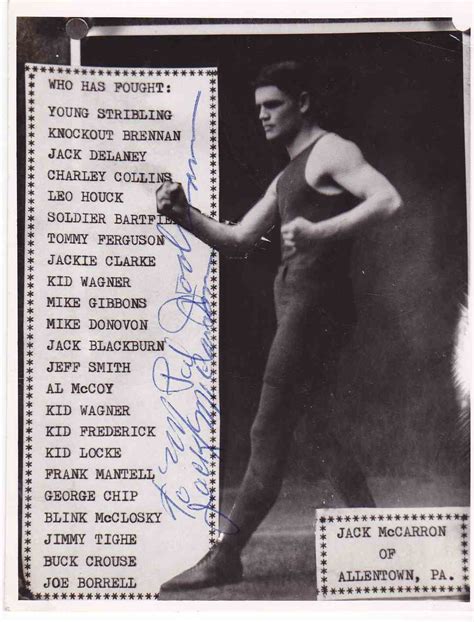 WHO HAS FOUGHT:
YOUNG STRIBLING
KNOCKOUT BRENNAN
JACK DELANEY
CHARLEY COLLINS
LEO HOUCK
SOLDIER BARTFIE
TOMMY FERGUSON
JACKIE CLARKE
KID WAGNER
MIKE GIBBONS
MIKE DONOVON
JACK BLACKBURN
JEFF SMITH
AL McCOY
KID WAGNER
KID FREDERICK
KID LOCKE
FRANK MANTELL
GEORGE CHIP
BLINK McCLOSKY
JIMMY TIGHE
BUCK CROUSE
JOE BORRELL
To my Pal
Jack McCarron
JACK McCARRON
OF
ALLENTOWN, PA.